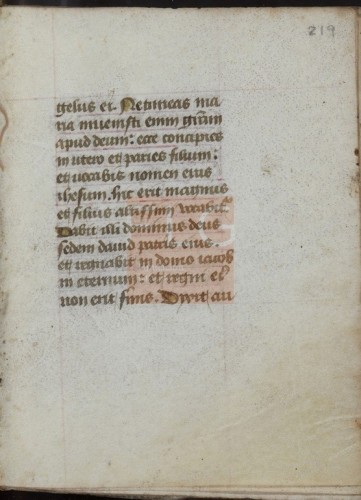 219
gelus ei. Ne timeas ma
ria invenisti enim grãm
apud deum: ecce concipies
in utero et paries filium:
et vocabis nomen eius
ihesum. hic erit magnus
et filius altissimi vocabit᷑
Dabit illi dominus deus
sedem david patris eius.
et regnabit in domo iacob
in eternum: et regni ei᷒
non erit finis. Dixit au